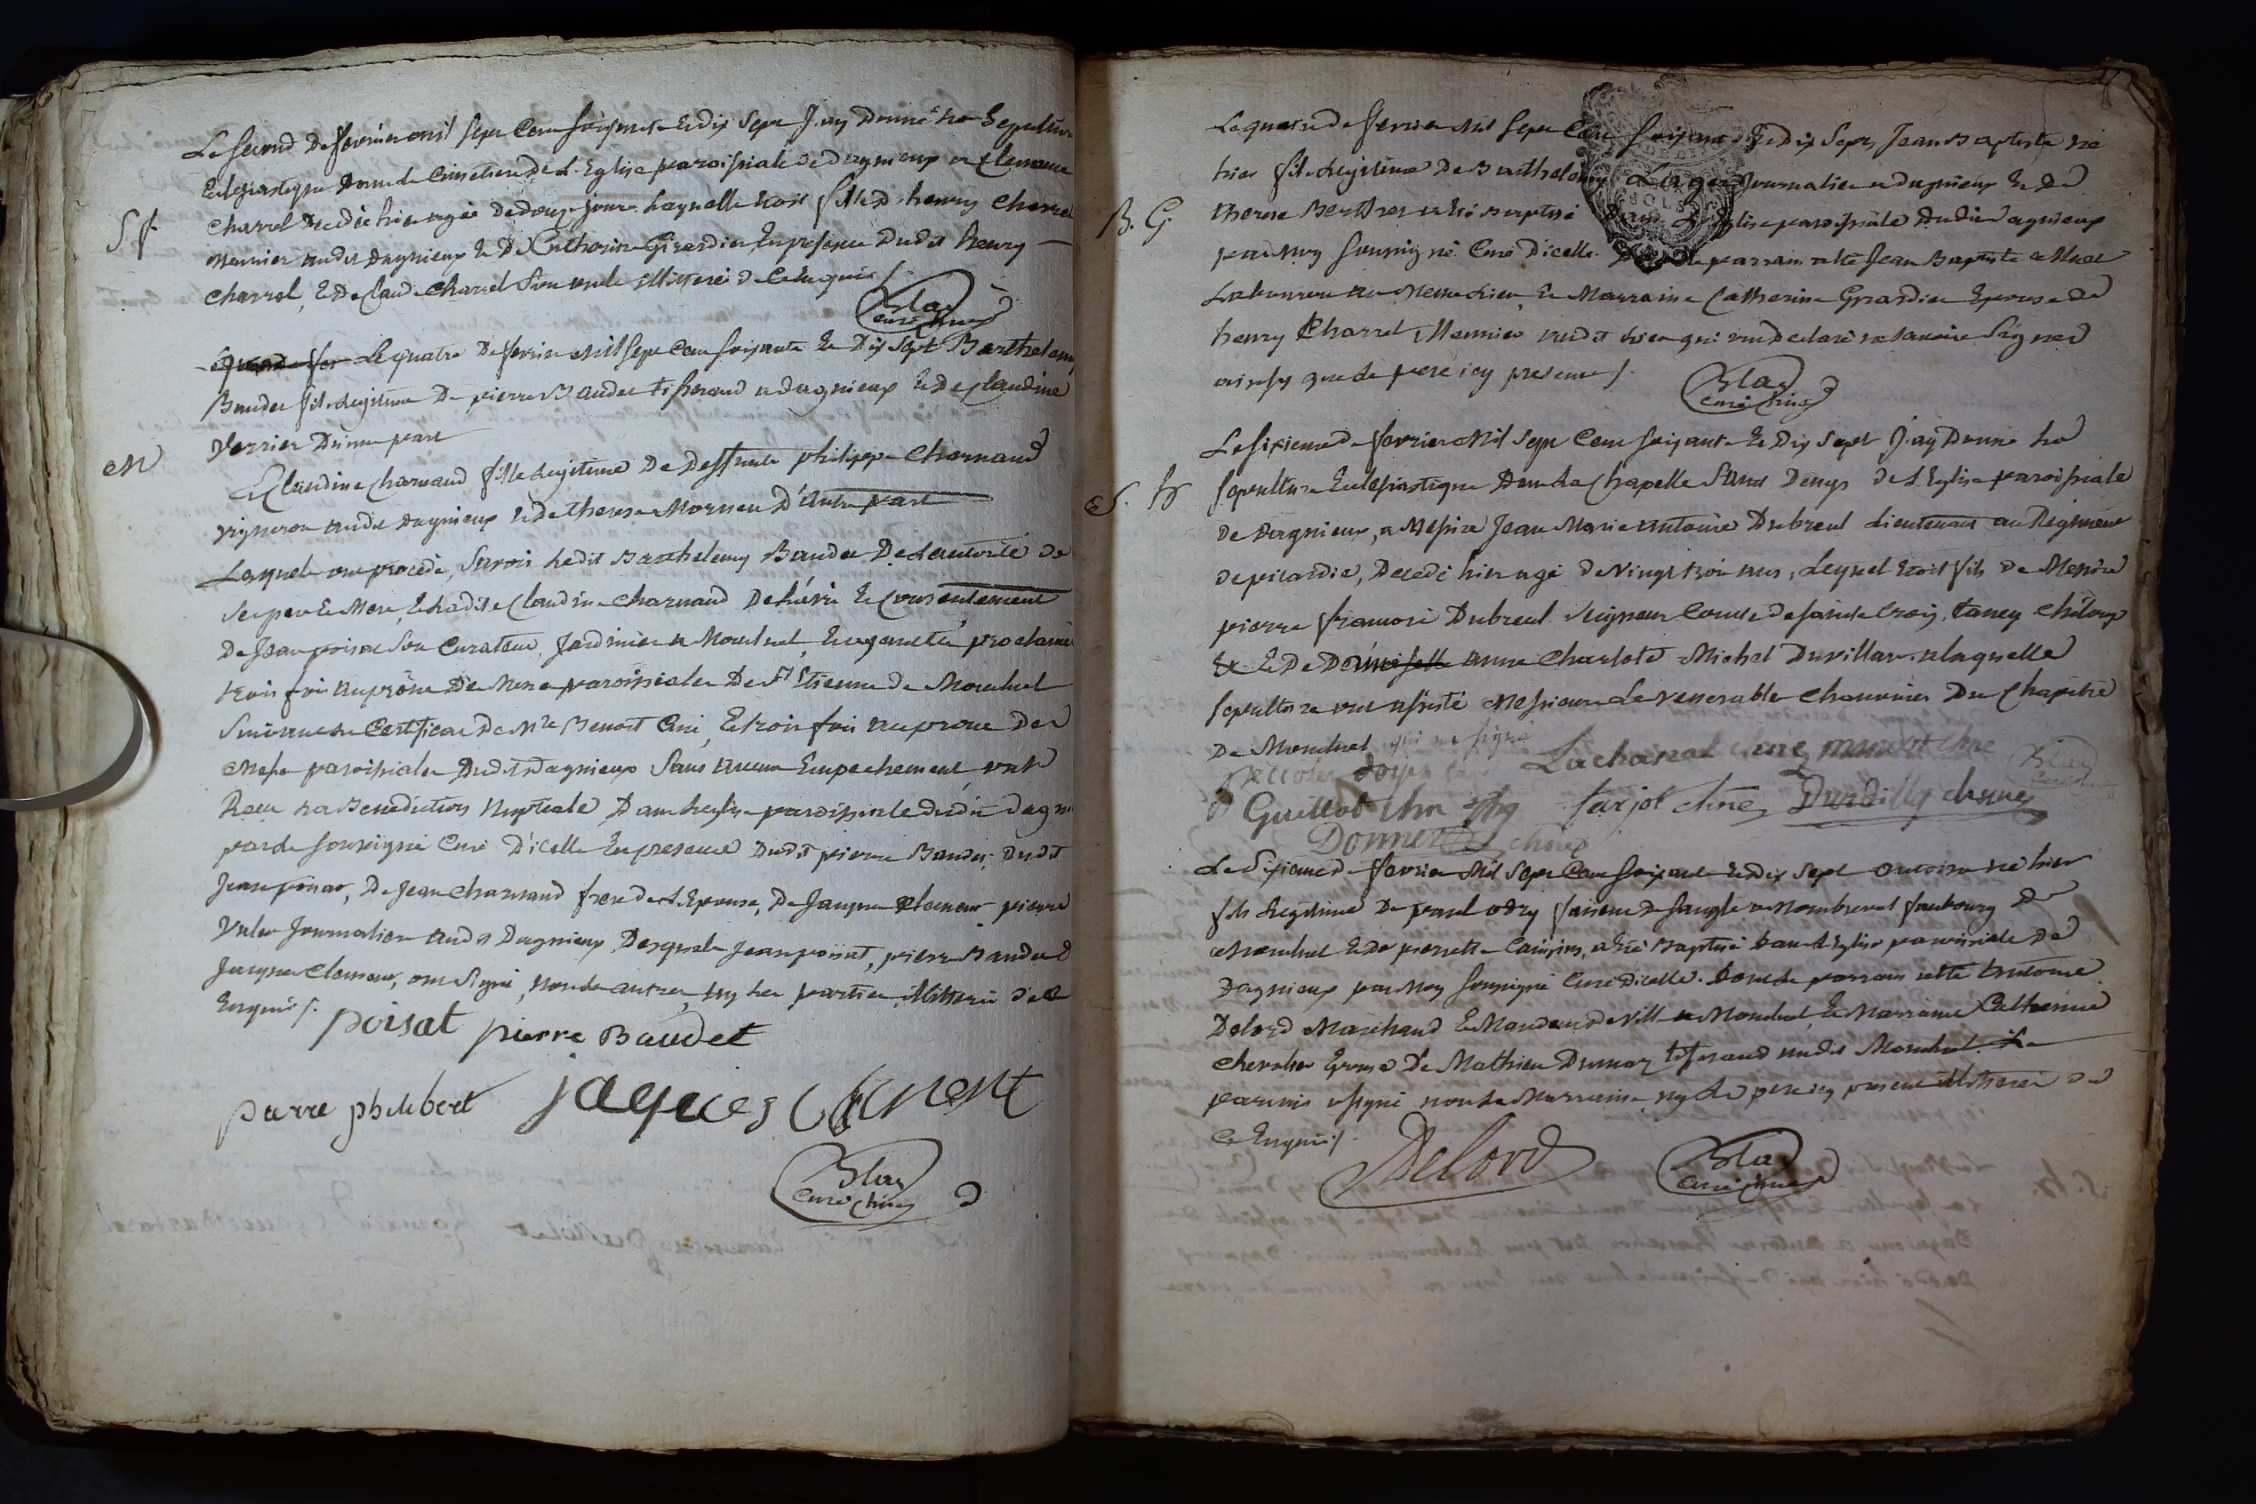 Le second de fevrier mil sept cent soixante et dix sept J'ay donné la sepulture
Eclesiastique dans le Cimetiere de L'Eglise paroissiale de dagnieux a Clemence
S f
Charrel decedée hier agée de douze jours laquelle étoit fille d'henry Charrel
meunier audit dagnieux et de Catherine Girardier, En presence dudit henry
Charrel, et de Claude Charrel son oncle illitteré de ce Enquis /.
Blas
curé chne
Le quatre de fevrier mil sept cent soixante et Dix sept Barthelemy
Baudet fils legitime De pierre Baudet tisserand a dagnieux et de Claudine
Verrier D'une part
M
Et Claudine Charnaud fille legitime De Deffunt philippe Charnaud
vigneron audit dagnieux et de therese Mornieu D'autre part
Lesquels ont procedé, savoir ledit Barthelemy Baudet De L'autorité de
ses pere et Mere, et ladite Claudine Charnaud De L'avis et Consentement
de Jean poisat son Curateur, Jardinier a Montluel, Et ayant eté proclamé
trois fois au prône De Messe paroissiale De St Etienne de Montluel
suivant le Certificat De Mre Benoit Curé, Et trois fois au prone de
Messe paroissiale Dudit Dagnieux sans aucun Empechement, ont
Reçu la Benediction Nuptiale, Dans L'eglise paroissiale dudit dagn
par le soussigné Curé D'icelle En presence Dudit pierre Baudet, Dudit
Jean poisat, De Jean Charnaud frere de L'Epouse, De Jacques Clement pierre
Journalier audit Dagnieux, Desquels Jean poisat, pierre Baudet
Jacques Clement, ont signé, non les autres, ny les parties, illitteré de ce
Enquis /.
poisat pierre Baudet
pierre philibert jaques Clement
Blas
Curé chne
Le quatre de fevrier mil sept cent soixante et Dix sept, Jean Baptiste né
hier fils Legitime De Barthelemy Journalier a dagnieux et de
B. G
therese Berthet a eté baptisé Dans L'Eglise paroissiale dudit dagnieux
par Moy soussigné Curé D'icelle parrain a eté Jean Baptiste
Laboureur au Meme Lieu, et Marraine Catherine Girardier Epouse de
henry Charrel, Meunier audit lieu qui ont declaré ne savoir signer
ainsy que le pere icy present /.
Blas
curé chne
Le sixieme de fevrier Mil sept cent soixante et Dix sept J'ay Donné la
S. h
sepulture Eclesiastique Dans La Chapelle Saint Denys de L'Eglise paroissiale
de Dagnieux, a Messire Jean Marie antoine Dubreul Lieutenant au Regiment
de picardie, Decedé hier agé de Vingt trois ans, Lequel étoit fils de Messire
pierre françois Dubreul Seigneur Comte de sainte Croix, tancy Chiloup
Et De Demoiselle anne Charlote Michel Duvillars a laquelle
sepulture ont assisté Messieurs Les venerables Chanoines Du Chapitre
De Montluel qui ont signé
doyen Lachainal chne chne Blas
Guillot chne tarjot chne Durdilly chne
Donner chne
Le sixieme de fevrier Mil sept cent soixante et dix sept antoine né hier
fils Legitime De paul odry faiseur de sangle a Montbrevel faubourg de
Montluel et de pierrette a eté Baptisé dans L'Eglise paroissiale de
Dagnieux par Moy soussigné Curé Dicelle. Dont le parrain a eté Antoine
Delord Marchand et Mandeur de Ville a Montluel, et Marraine Catherine
Chevalier Epouse De Mathieu tisserand audit Montluel. Le
parrain a signé non la Marraine, ny le pere icy present illitteré de
ce Enquis /.
Delord
Blas
Curé chne